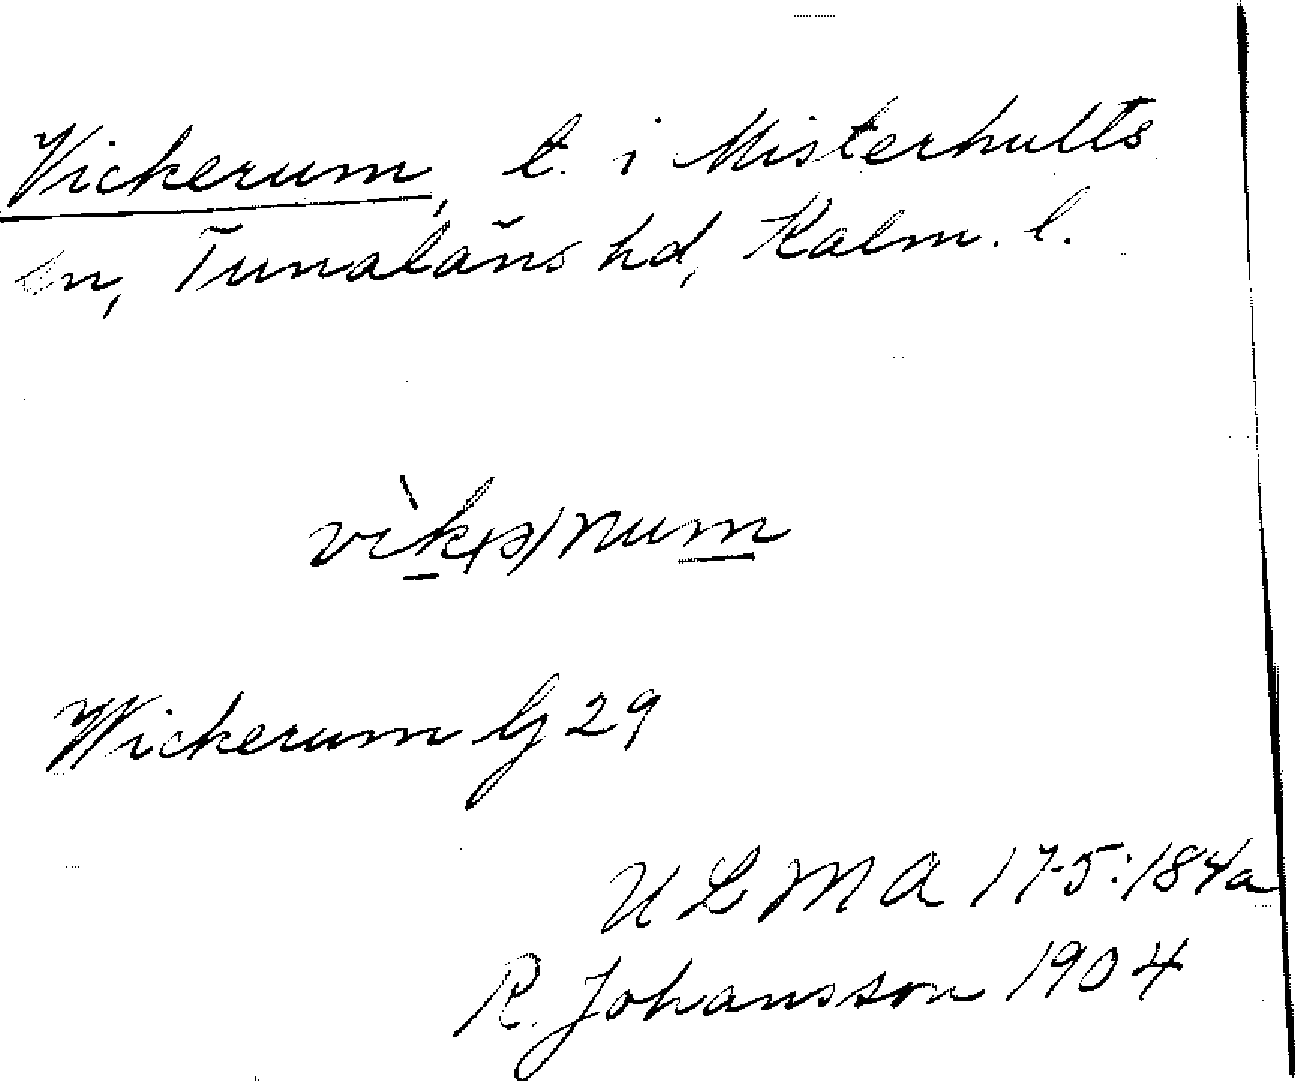 Vickerum, t. i Misterhults
sn, Tunaläns hd, Kalm. l.
vìk(ə)num
Wickerum Gj 29
ULMA 175:184a
R. Johansson 1904